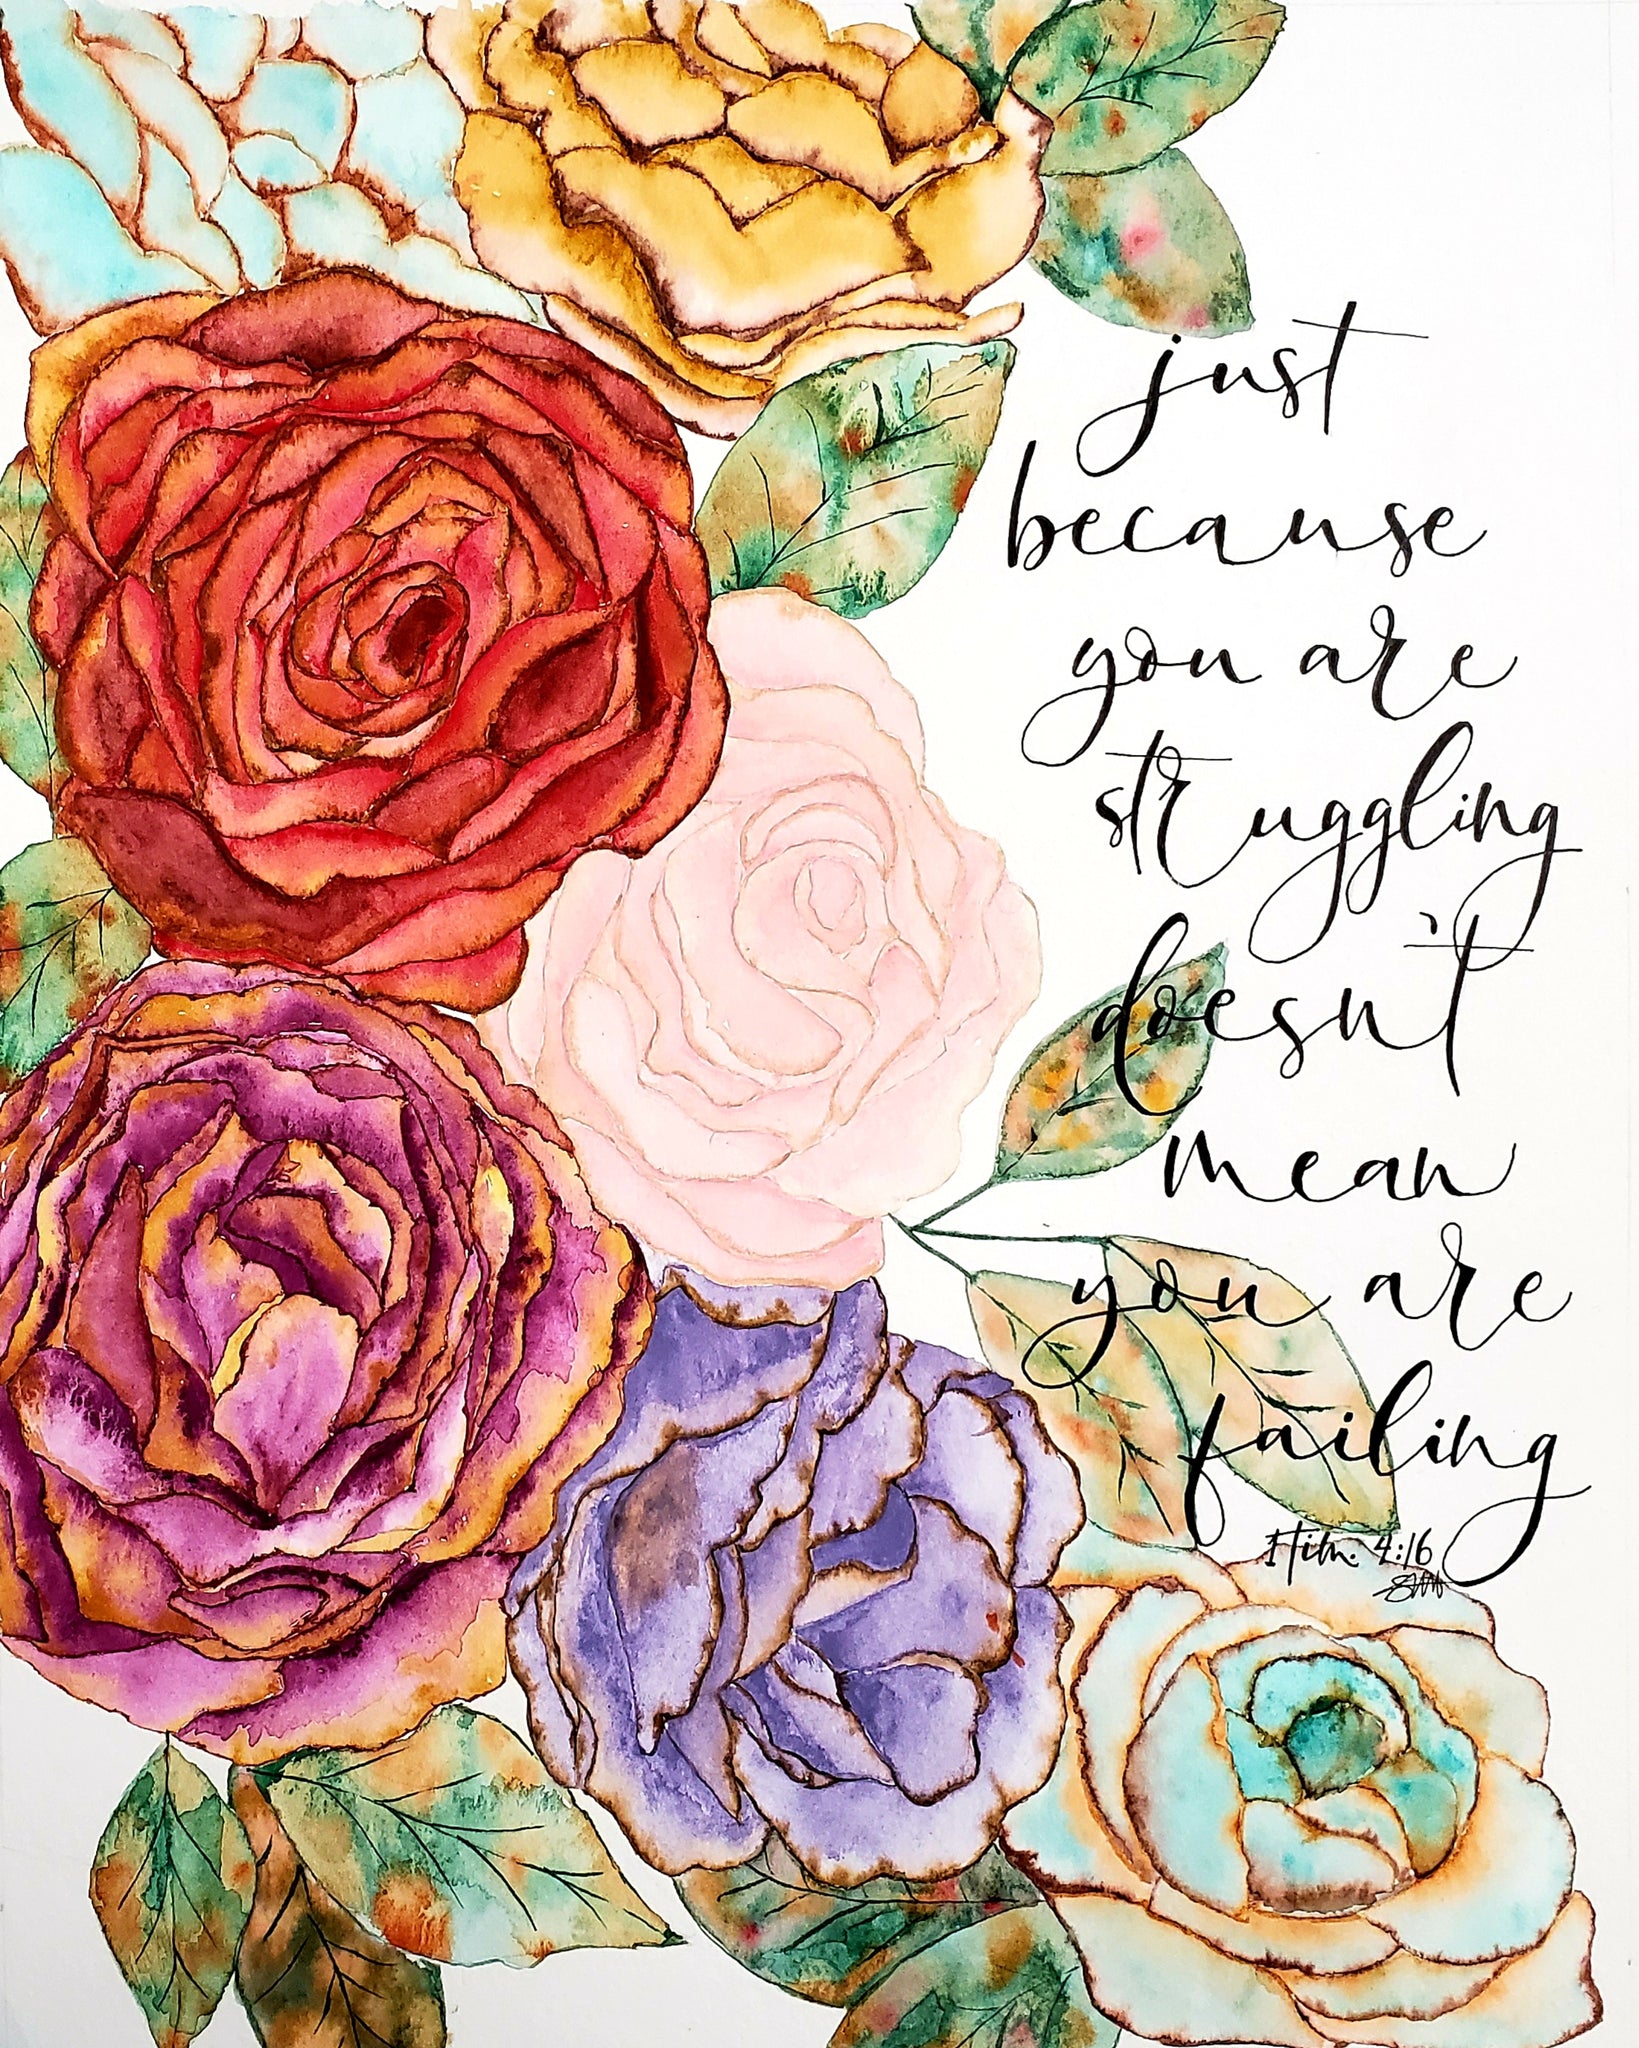 just
because
you are
struggling
doesn't
mean
you are
failing
1 Tim. 4:16